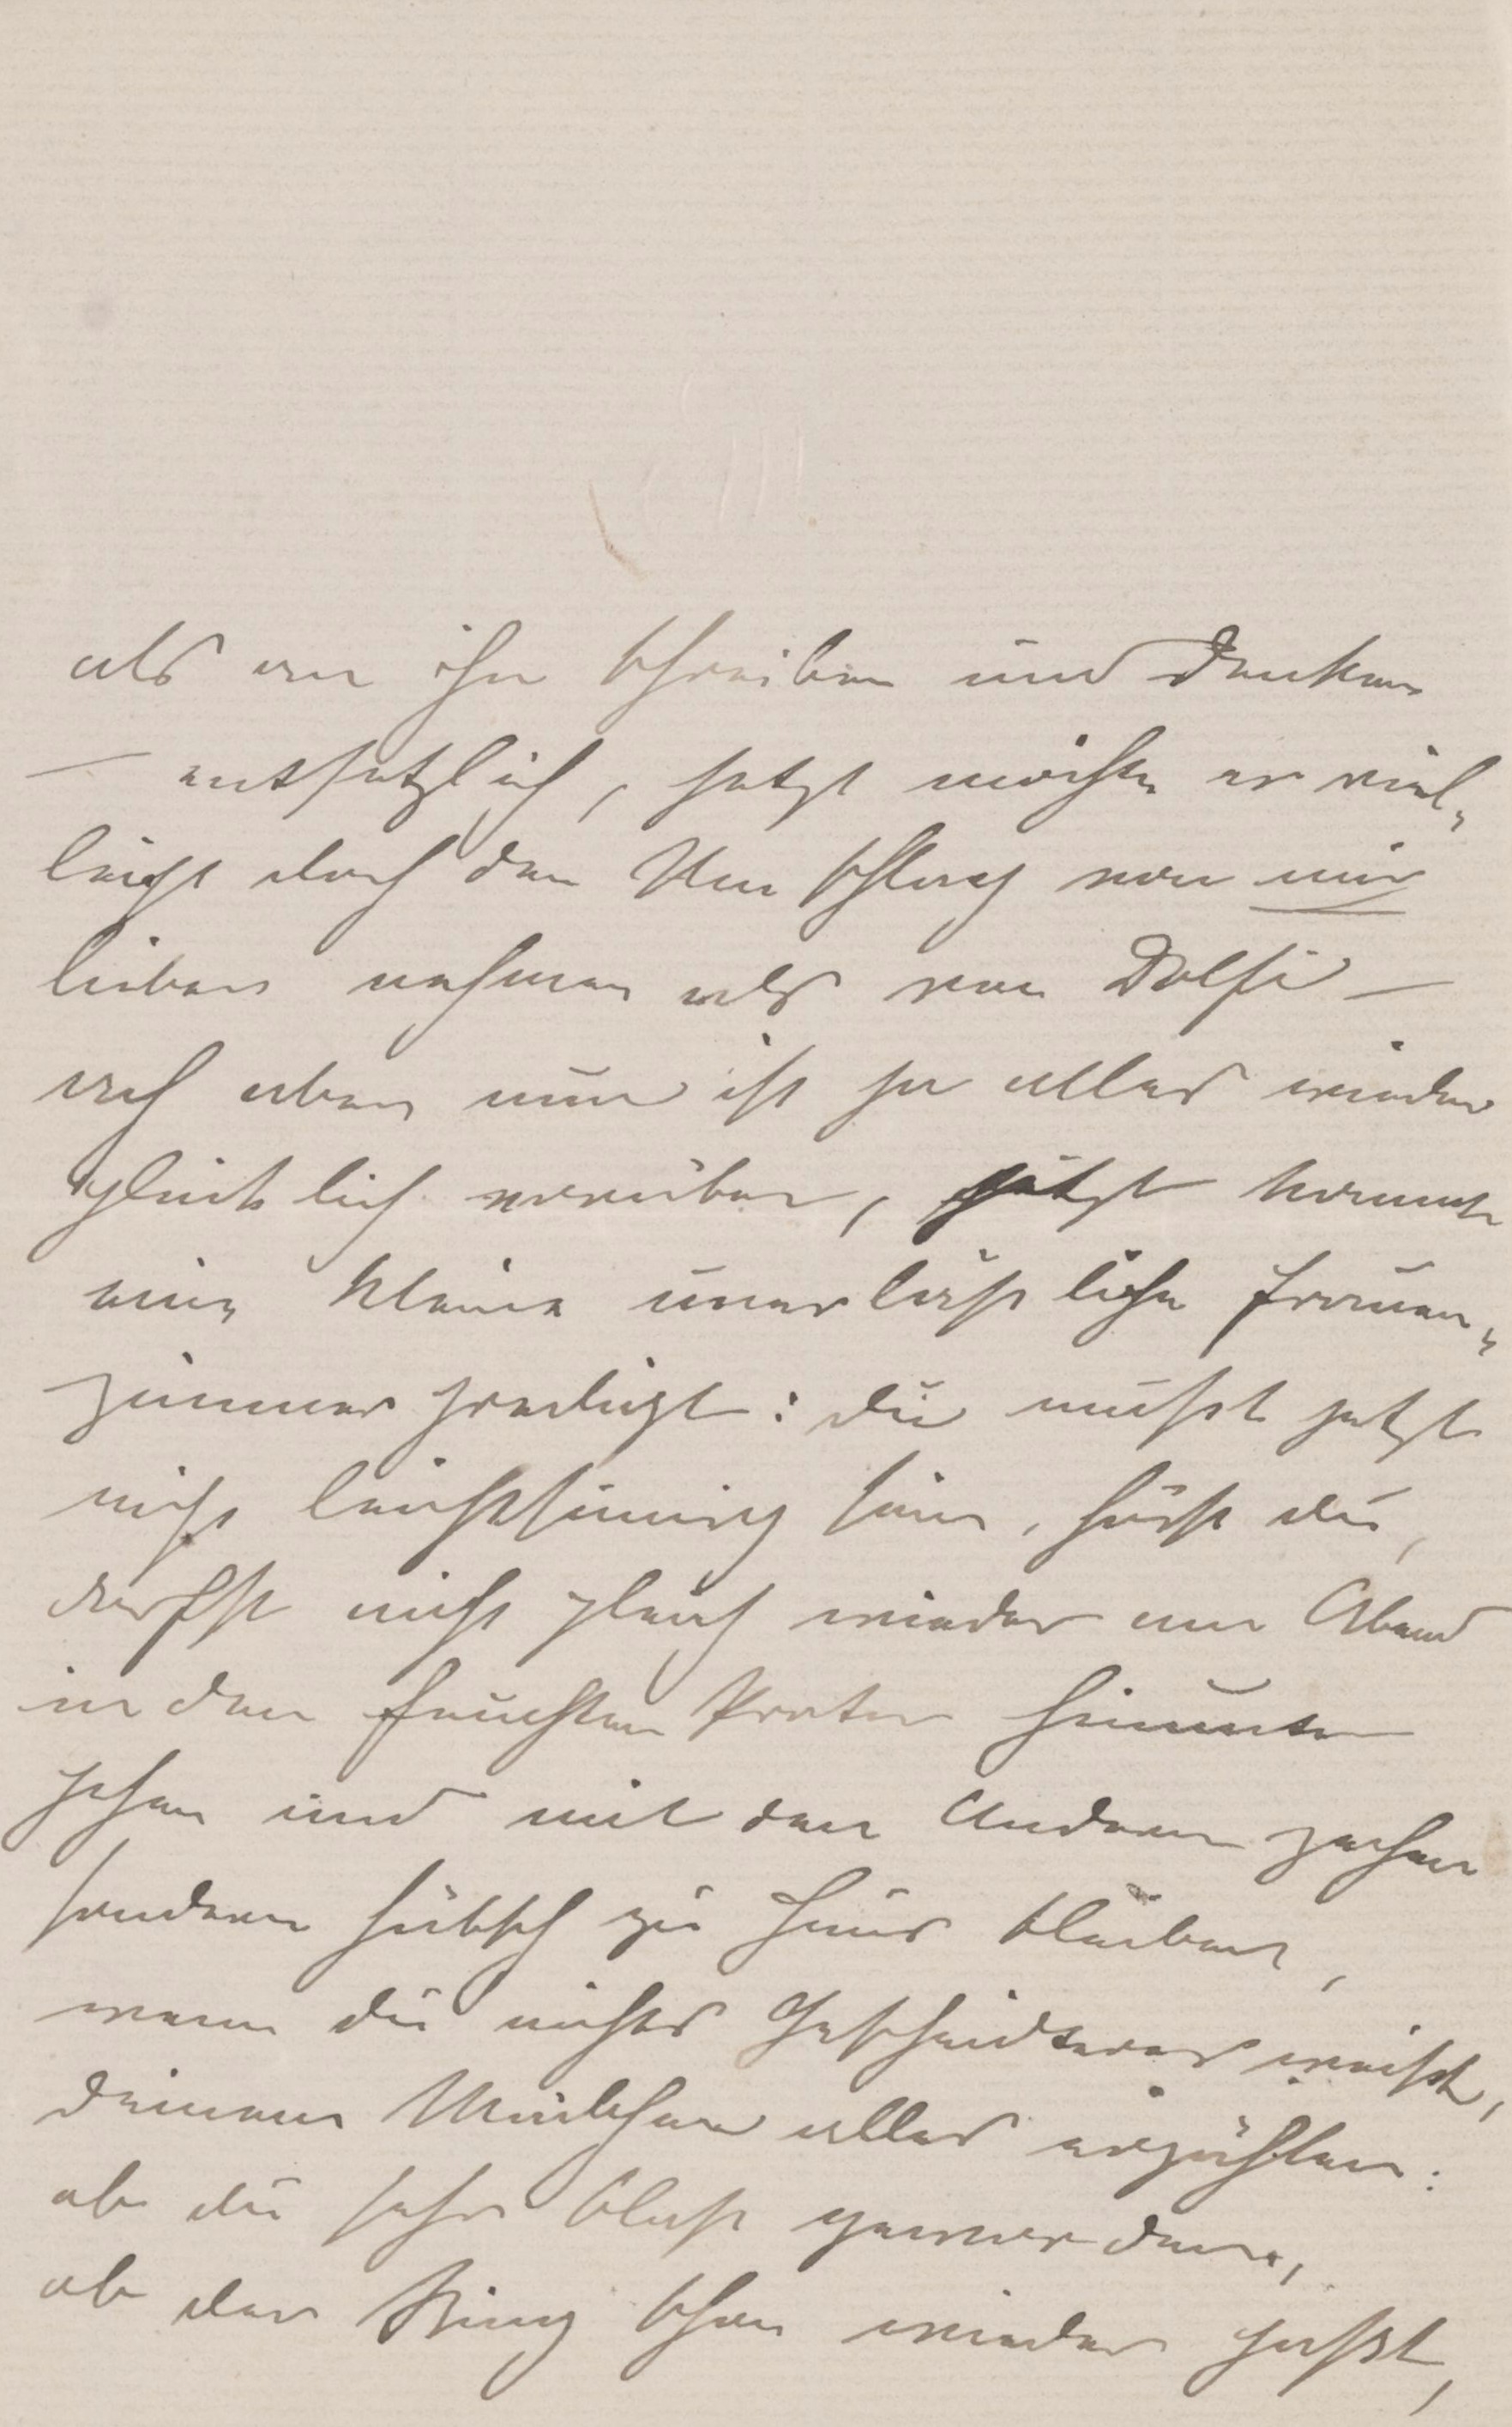 als an ihn schreiben und denken
— entsetzlich, jetzt möchte er viel-
leicht doch den Umschlag von mir
lieber nehmen als von Dolfi —
ach aber nun ist ja alles wieder
glücklich vorüber, jetzt kommt
eine kleine unerläßliche Frauen-
zimmerpredigt: du mußt jetzt
nicht leichtsinnig sein, hörst du,
darfst nicht gleich wieder am Abend
in den feuchten Prater hinunter
gehen und mit den Andern zechen
sondern hübsch zu Haus bleiben,
wenn du nichts Gescheidteres weißt,
deinem Mädchen alles erzählen:
ob du sehr blaß geworden,
ob der Ring schon wieder paßt,